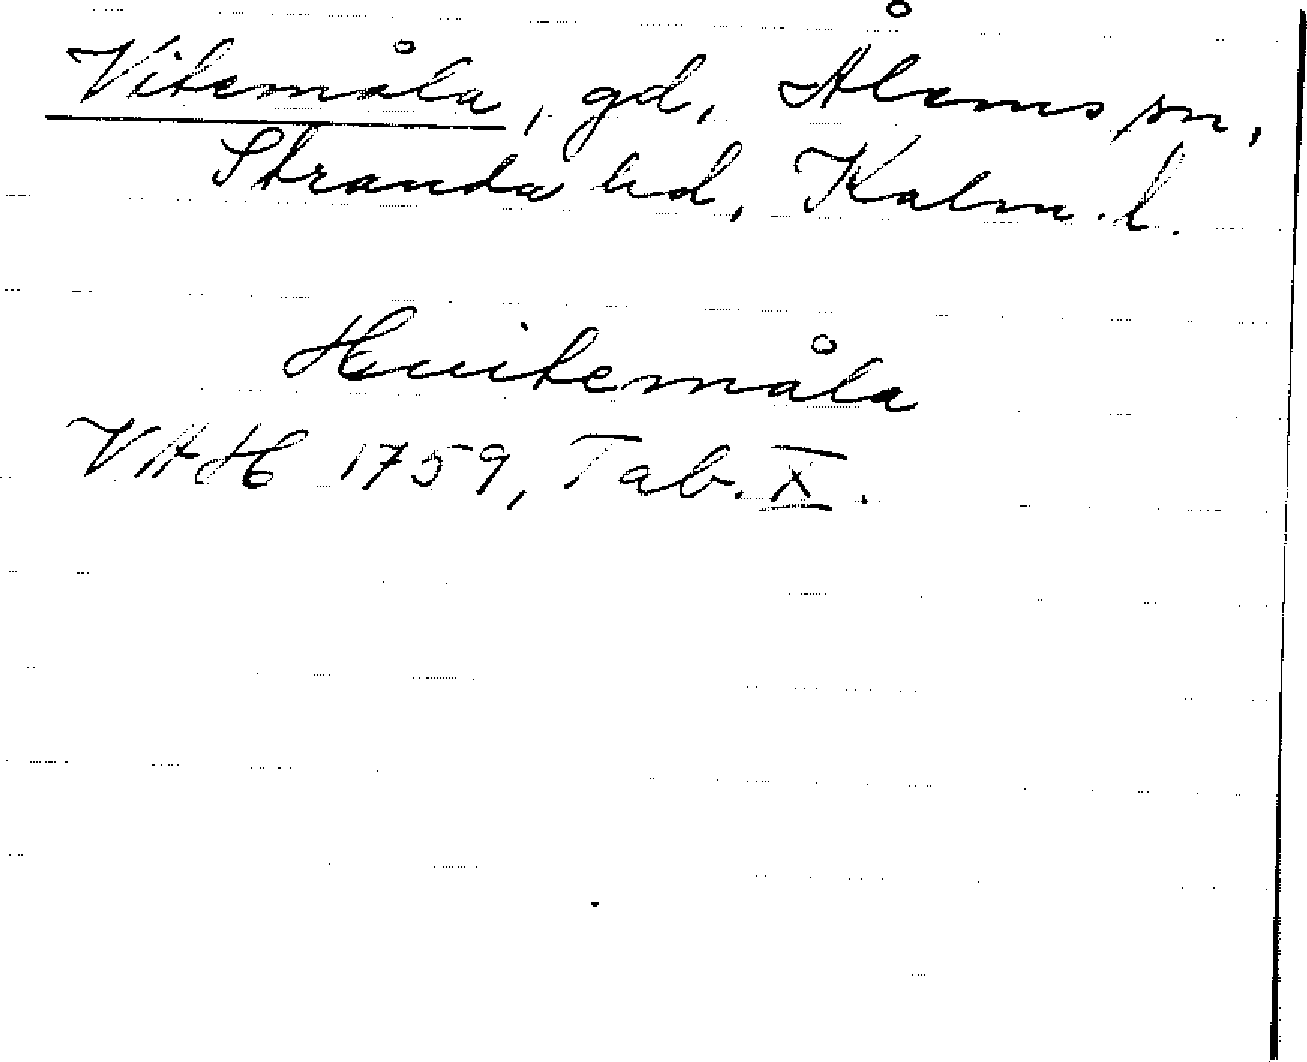 Vitemåla, gd, Ålems sn,
Stranda hd, Kalm. l.
Huitemåla
VAH 1759, Tab. X.